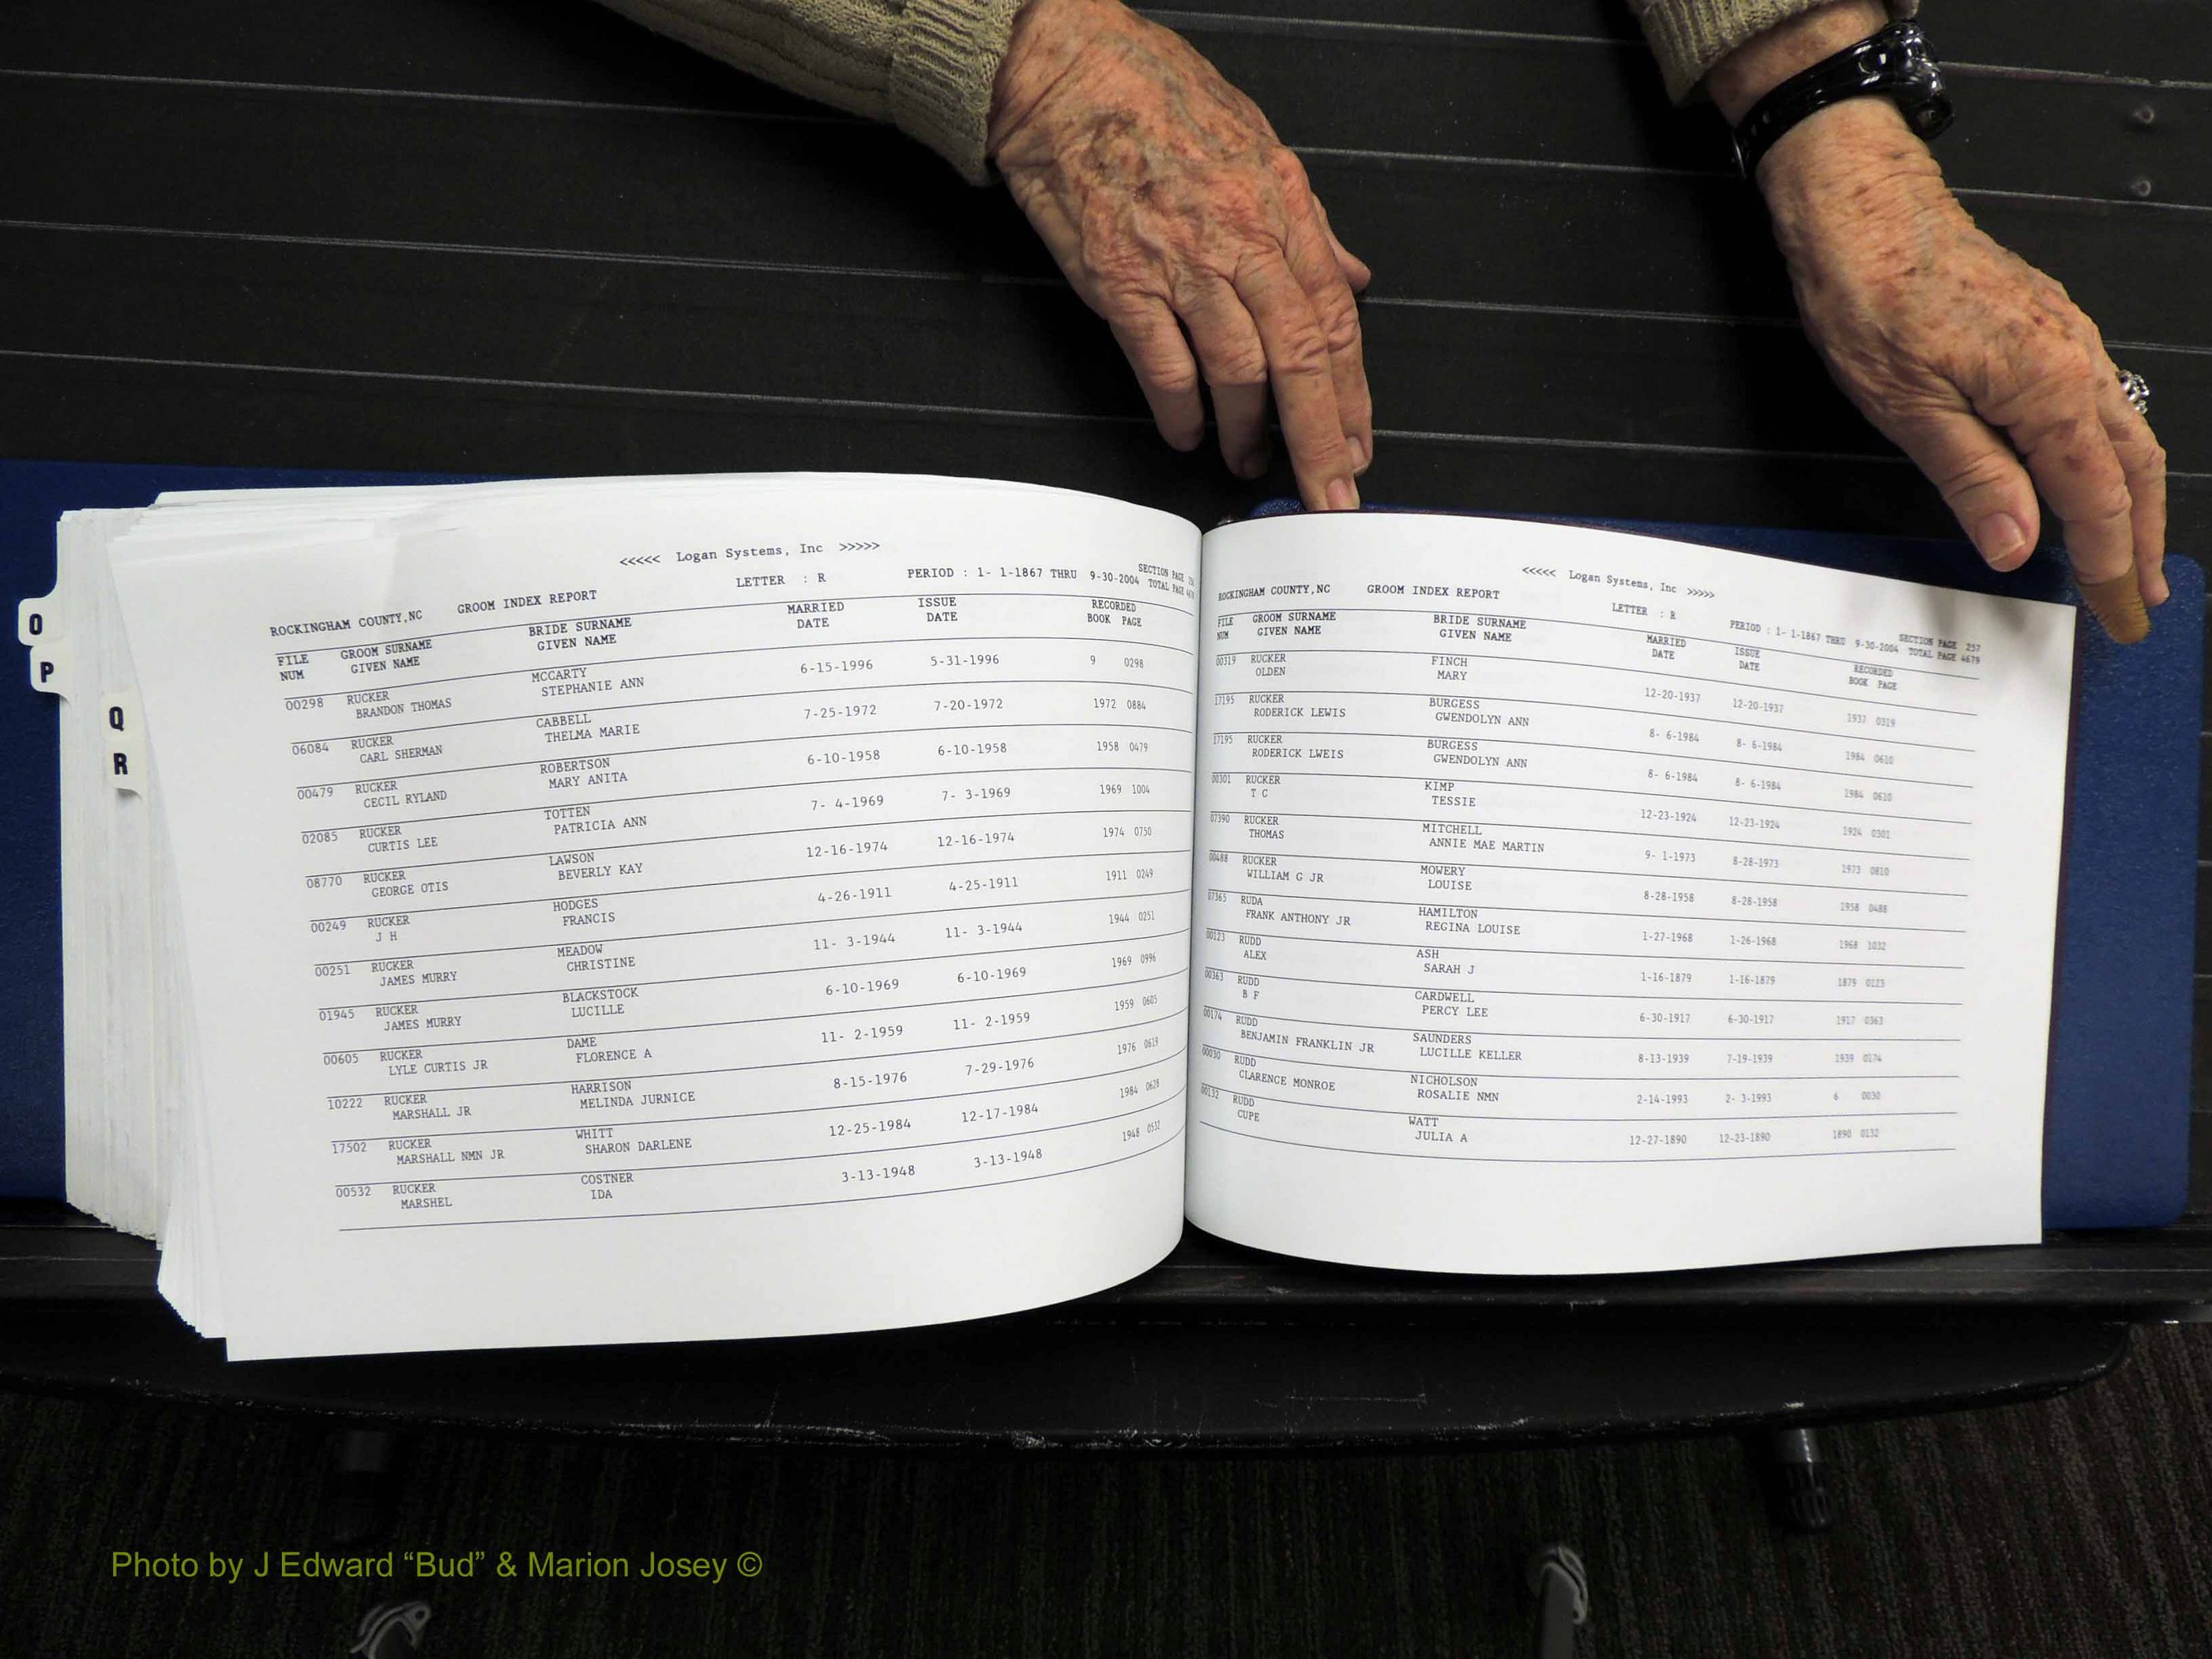 O
P
Q
R
<<<<< Logan Systems, Inc >>>>>
ROCKINGHAM COUNTY,NC GROOM INDEX REPORT LETTER : R PERIOD : 1- 1-1867 THRU 9-30-2004 SECTION PAGE
TOTAL PAGE
FILE NUM GROOM SURNAME GIVEN NAME BRIDE SURNAME GIVEN NAME MARRIED DATE ISSUE DATE RECORDED BOOK PAGE
00298 RUCKER MCCARTY 6-15-1996 5-31-1996 9 0298
BRANDON THOMAS STEPHANIE ANN
06084 RUCKER CABBELL 7-25-1972 7-20-1972 1972 0884
CARL SHERMAN THELMA MARIE
00479 RUCKER ROBERTSON 6-10-1958 6-10-1958 1958 0479
CECIL RYLAND MARY ANITA
02085 RUCKER TOTTEN 7- 4-1969 7- 3-1969 1969 1004
CURTIS LEE PATRICIA ANN
08770 RUCKER LAWSON 12-16-1974 12-16-1974 1974 0750
GEORGE OTIS BEVERLY KAY
00249 RUCKER HODGES 4-26-1911 4-25-1911 1911 0249
J H FRANCIS
00251 RUCKER MEADOW 11- 3-1944 11- 3-1944 1944 0251
JAMES MURRY CHRISTINE
01945 RUCKER BLACKSTOCK 6-10-1969 6-10-1969 1969 0996
JAMES MURRY LUCILLE
00605 RUCKER DAME 11- 2-1959 11- 2-1959 1959 0605
LYLE CURTIS JR FLORENCE A
10222 RUCKER HARRISON 8-15-1976 7-29-1976 1976 0619
MARSHALL JR MELINDA JURNICE
17502 RUCKER WHITT 12-25-1984 12-17-1984 1984 0628
MARSHALL NMN JR SHARON DARLENE
00532 RUCKER COSTNER 3-13-1948 3-13-1948 1948 0532
MARSHEL IDA
<<<<< Logan Systems, Inc >>>>>
ROCKINGHAM COUNTY,NC GROOM INDEX REPORT LETTER : R PERIOD : 1- 1-1867 THRU 9-30-2004 SECTION PAGE 257
TOTAL PAGE 4679
FILE NUM GROOM SURNAME GIVEN NAME BRIDE SURNAME GIVEN NAME MARRIED DATE ISSUE DATE RECORDED BOOK PAGE
00319 RUCKER FINCH 12-20-1937 12-20-1937 1937 0319
OLDEN MARY
17195 RUCKER BURGESS 8- 6-1984 8- 6-1984 1984 0610
RODERICK LEWIS GWENDOLYN ANN
17195 RUCKER BURGESS 8- 6-1984 8- 6-1984 1984 0610
RODERICK LWEIS GWENDOLYN ANN
00301 RUCKER KIMP 12-23-1924 12-23-1924 1924 0301
T C TESSIE
07390 RUCKER MITCHELL 9- 1-1973 8-28-1973 1973 0810
THOMAS ANNIE MAE MARTIN
00488 RUCKER MOWERY 8-28-1958 8-28-1958 1958 0488
WILLIAM G JR LOUISE
07365 RUDA HAMILTON 1-27-1968 1-26-1968 1968 1032
FRANK ANTHONY JR REGINA LOUISE
00123 RUDD ASH 1-16-1879 1-16-1879 1879 0123
ALEX SARAH J
00363 RUDD CARDWELL 6-30-1917 6-30-1917 1917 0363
B F PERCY LEE
00174 RUDD SAUNDERS 8-13-1939 7-19-1939 1939 0174
BENJAMIN FRANKLIN JR LUCILLE KELLER
00030 RUDD NICHOLSON 2-14-1993 2- 3-1993 6 0030
CLARENCE MONROE ROSALIE NMN
00132 RUDD WATT 12-27-1890 12-23-1890 1890 0132
CUPE JULIA A
Photo by J Edward “Bud” & Marion Josey ©